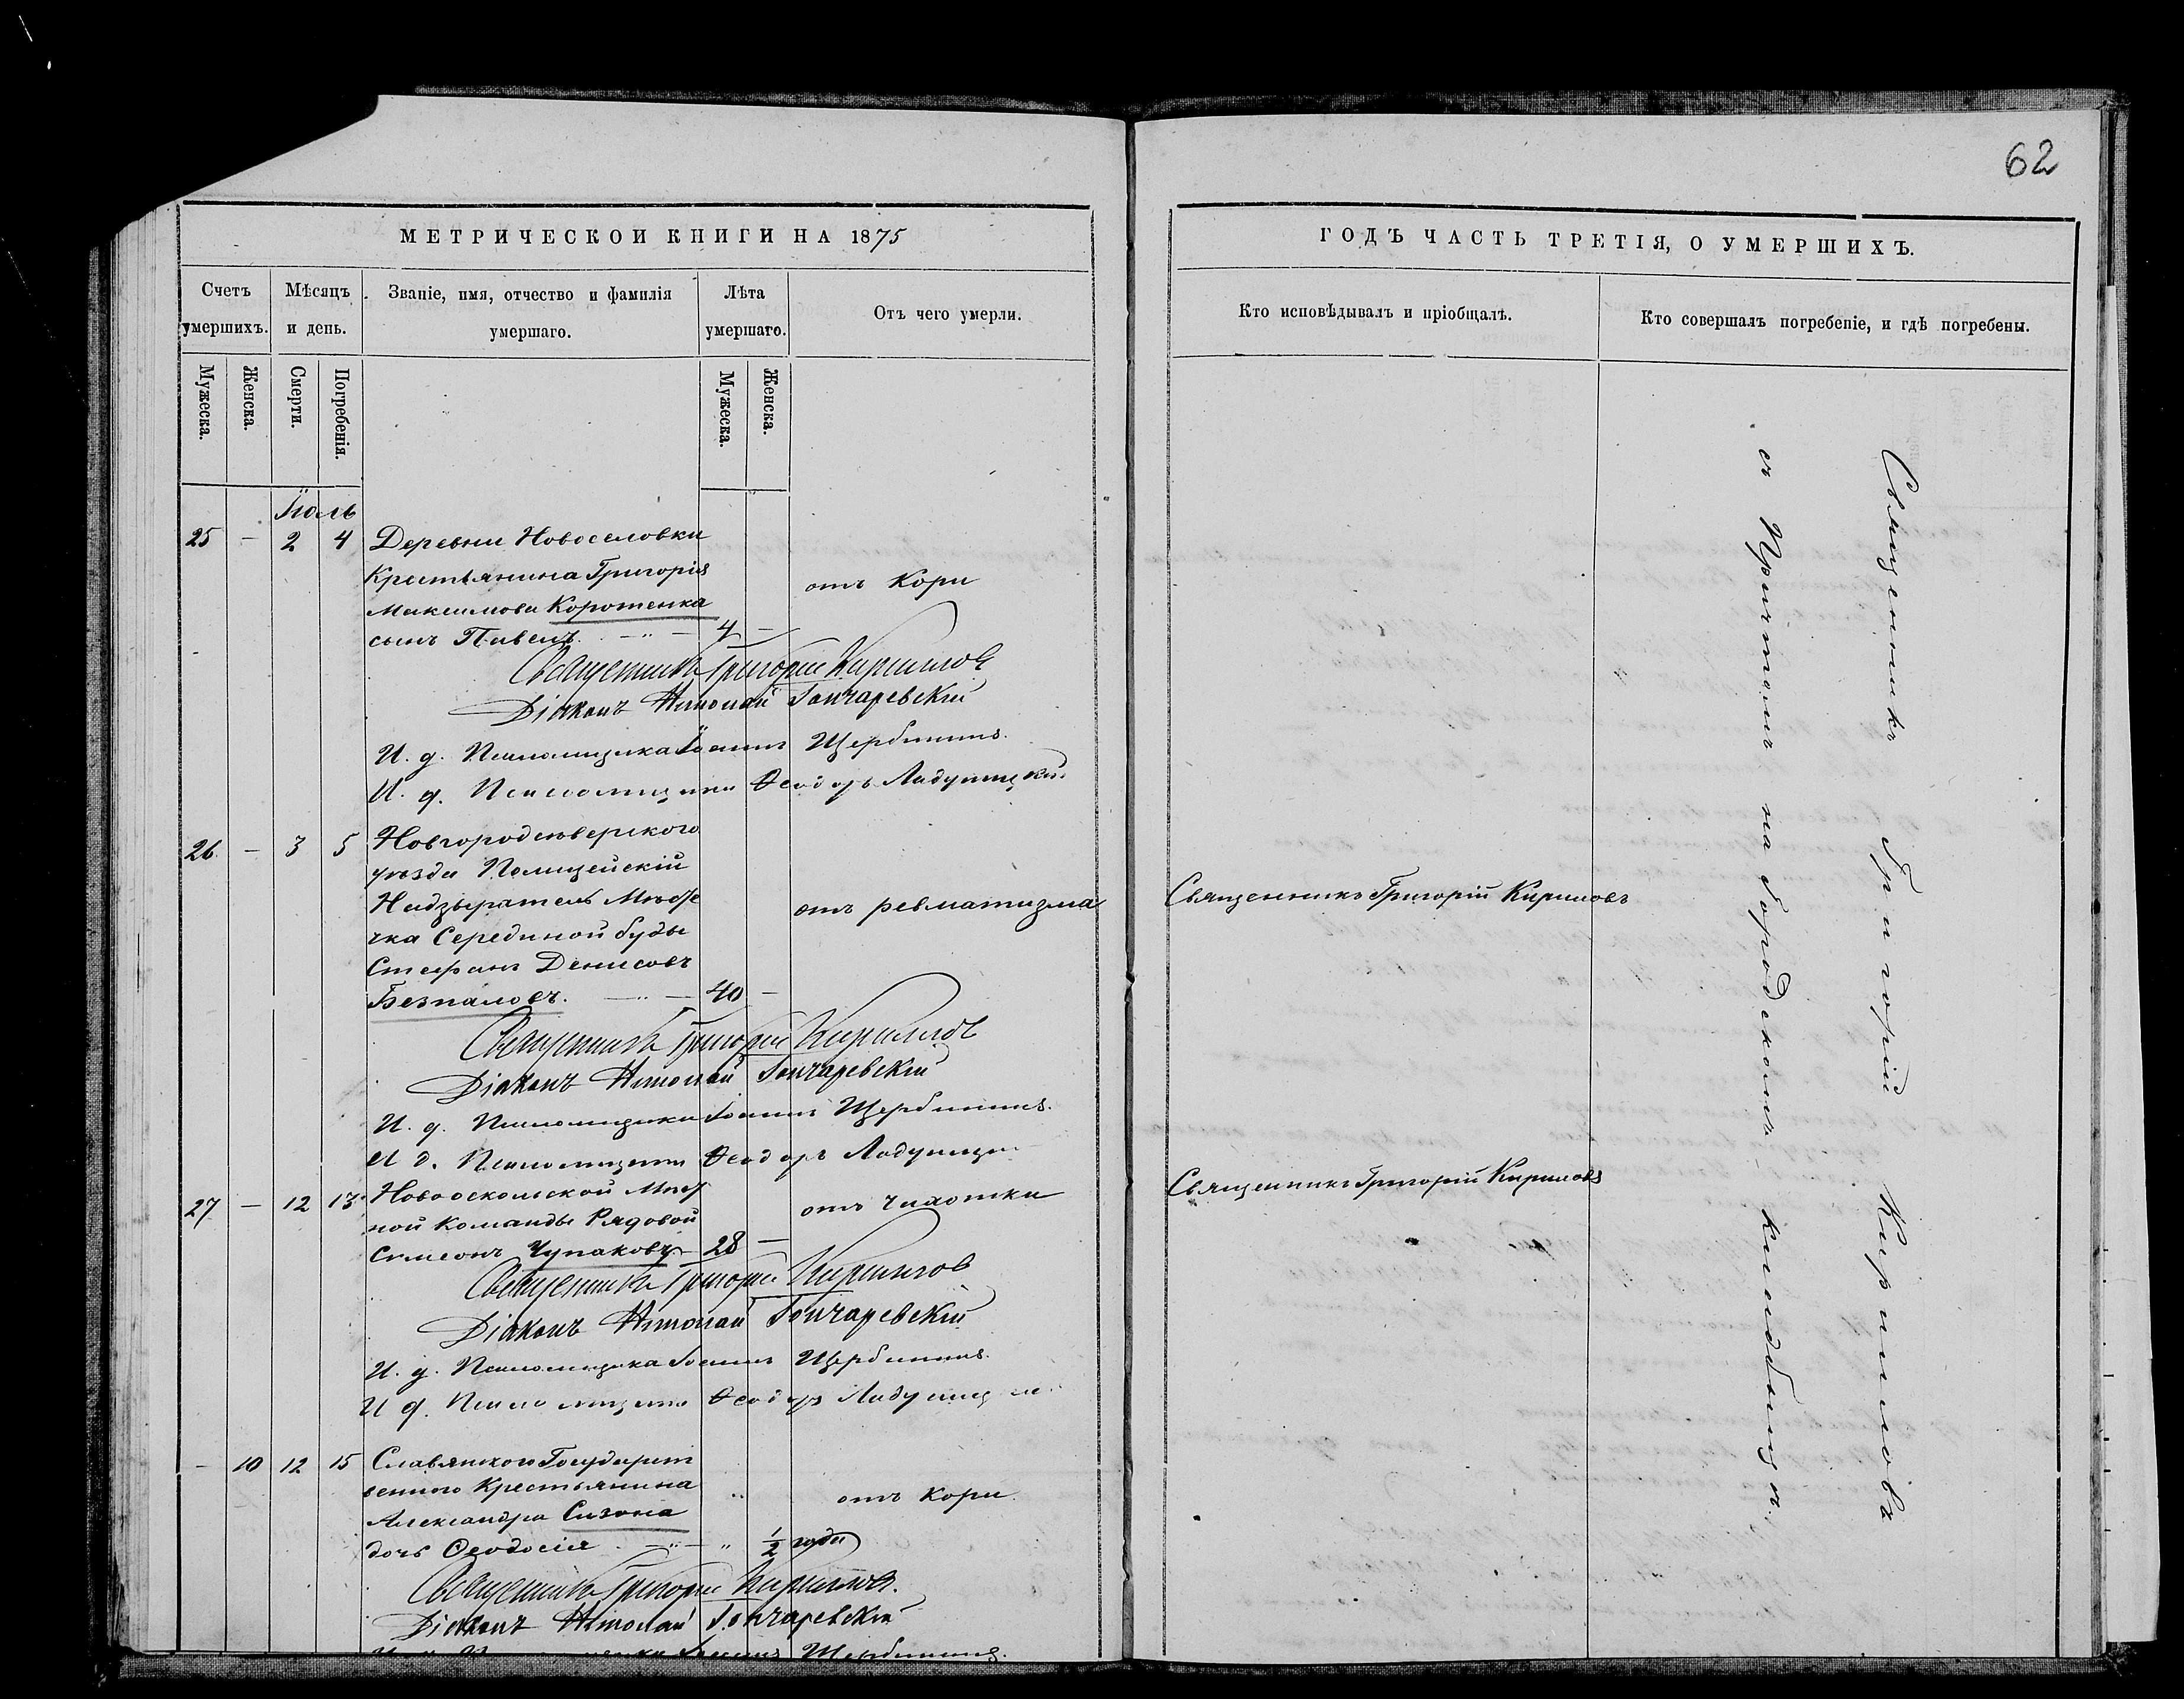 62
МЕТРИЧЕСКОЙ КНИГИ НА 1875
Счетъ умершихъ.
Мѣсяцъ и день.
Званіе, имя, отчество и фамилія умершаго.
Лѣта умершаго.
Отъ чего умерли.
Мужеска.
Женска.
Смерти.
Погребенія.
Мужеска.
Женска.
Іюль
25 - 2 4 Деревни Новоселовки
Крестьянина Григорія
Максимова Коротенка
отъ кори
сынъ Павелъ. 4 -
Священникъ Григорій Кириловъ
Діаконъ Николай Гончаревскій
И. д. Псаломщика Іоаннъ Щербининъ.
И. д. Псаломщика Ѳеодоръ
26 - 3 5 Новгородсѣверского
уѣзда Полицейскій
Надзыратель Мѣсте
отъ ревматизма
чка Серединой буды
Стефанъ Денисовъ
Безпаловъ. 40 -
Священникъ Григорій Кириловъ
Діаконъ Николай Гончаревскій
И. д. Псаломщика Іоаннъ Щербининъ.
И д. Псаломщика Ѳеодоръ
27 - 12 13 Новооскольской Мѣст
отъ чахотки
ной команды Рядовой
Симеонъ Чупаковъ 28 -
Священникъ Григорій Кириловъ
Діаконъ Николай Гончаревскій
И. д. Псаломщика Іоаннъ Щербининъ.
И д. Псаломщика Ѳеодоръ
- 10 12 15 Славянского Государст
венного Крестьянина
отъ кори.
Александра Сизона
дочь Ѳеодосія " ½ года
Священникъ Григорій Кириловъ.
Діаконъ Николай Гончаревскій
Іоаннъ Щербининъ.
ГОДЪ ЧАСТЬ ТРЕТІЯ, О УМЕРШИХЪ.
Кто исповѣдывалъ и пріобщалъ.
Кто совершалъ погребеніе, и гдѣ погребены.
Священникъ Григорій Кириловъ
Священникъ Григорій Кириловъ
Священникъ Григорій Кириловъ
съ Причтомъ на городскомъ кладбищѣ.